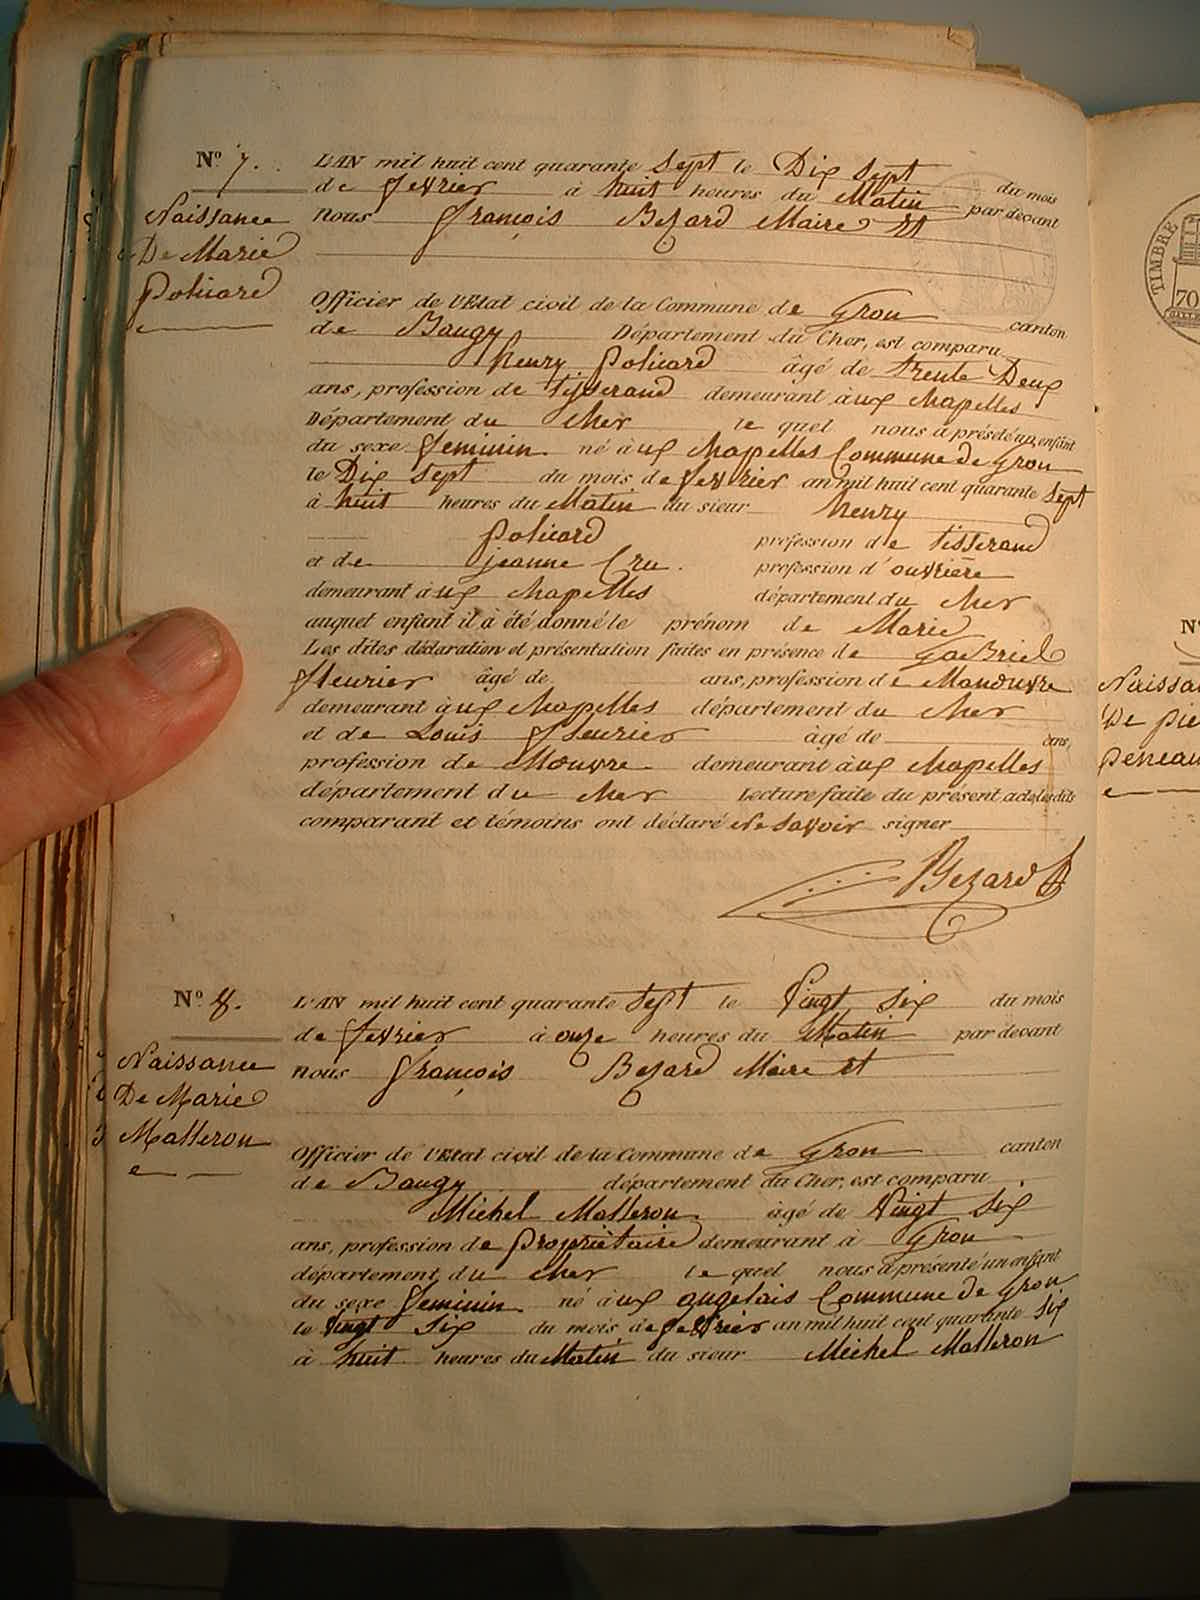 N.º 7.
Naissance
De Marie
Policard
L'AN mil huit cent quarante sept le Dix sept du mois
de fevrier à huit heures du Matin par devant
nous françois Bezard Maire et
Officier de l'Etat civil de la Commune de Gron canton
de Baugy Département du Cher, est comparu
henry Policard âgé de trente Deux
ans, profession de tisserand demeurant à aux chapelles
Département du cher le quel nous a préseté un enfant
du sexe feminin né à aux chapelles Commune de Gron
le Dix sept du mois de fevrier an mil huit cent quarante sept
à huit heures du Matin du sieur henry
Policard profession de tisserand
et de jeanne Cru. profession d'ouvrière
demeurant à aux chapelles département du cher
auquel enfant il à été donné le prénom de Marie
Les dites déclaration et présentation faites en présence de Gabriel
fleurier âgé de ans, profession de Manouvre
demeurant à aux chapelles département du cher
et de Louis fleurier âgé de ans,
profession de Mouvre demeurant à aux chapelles
département du cher Lecture faite du présent acte, les dits
comparant et témoins ont déclaré Ne savoir signer
Bezard
N.º 8.
Naissance
De Marie
Malleron
L'AN mil huit cent quarante sept le Vingt six du mois
de fevrier à onze heures du Matin par devant
nous françois Bezard Maire et
Officier de l'Etat civil de la Commune de Gron canton
de Baugy département du Cher, est comparu
Michel Malleron âgé de Vingt six
ans, profession de propriètaire demeurant à Gron
département du cher le quel nous a présenté un enfant
du sexe feminin né à aux angelais Commune de Gron
le Vingt six du mois de fevrier an mil huit cent quarante six
à huit heures du Matin du sieur Michel Malleron
TIMBRE
70
N.º
Naissa
De pie
peneau